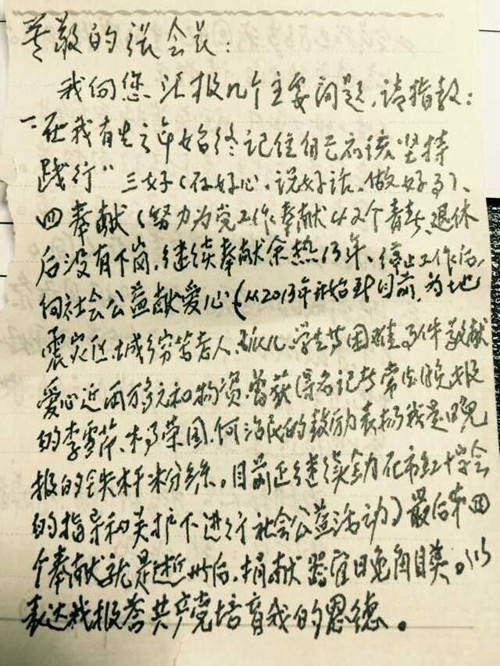 尊敬的张会长：
我向您汇报几个主要问题，请指教：
一在我有生之年始终记住自己应该坚持
践行"三好（存好心、说好话、做好事）、
四奉献（努力为党工作奉献42个春秋、退休
后没有下岗，继续奉献余热13年、停止工作后，
向社会公益献爱心（从2013年开始到目前，为地
震灾区城乡穷苦老人、孤儿、学生等困难事件敬献
爱心近两万多元和物资，曾获得名记者常出晚报
的李雪芹、杨荣国、何治民的鼓励表扬我是晚
报的铁杆粉丝。目前正继续全力在市红十字会
的指导和关护下进行社会公益活动）最后第四
个奉献就是逝世后，捐献器官眼角膜。以
表达我报答共产党培育我的恩德。